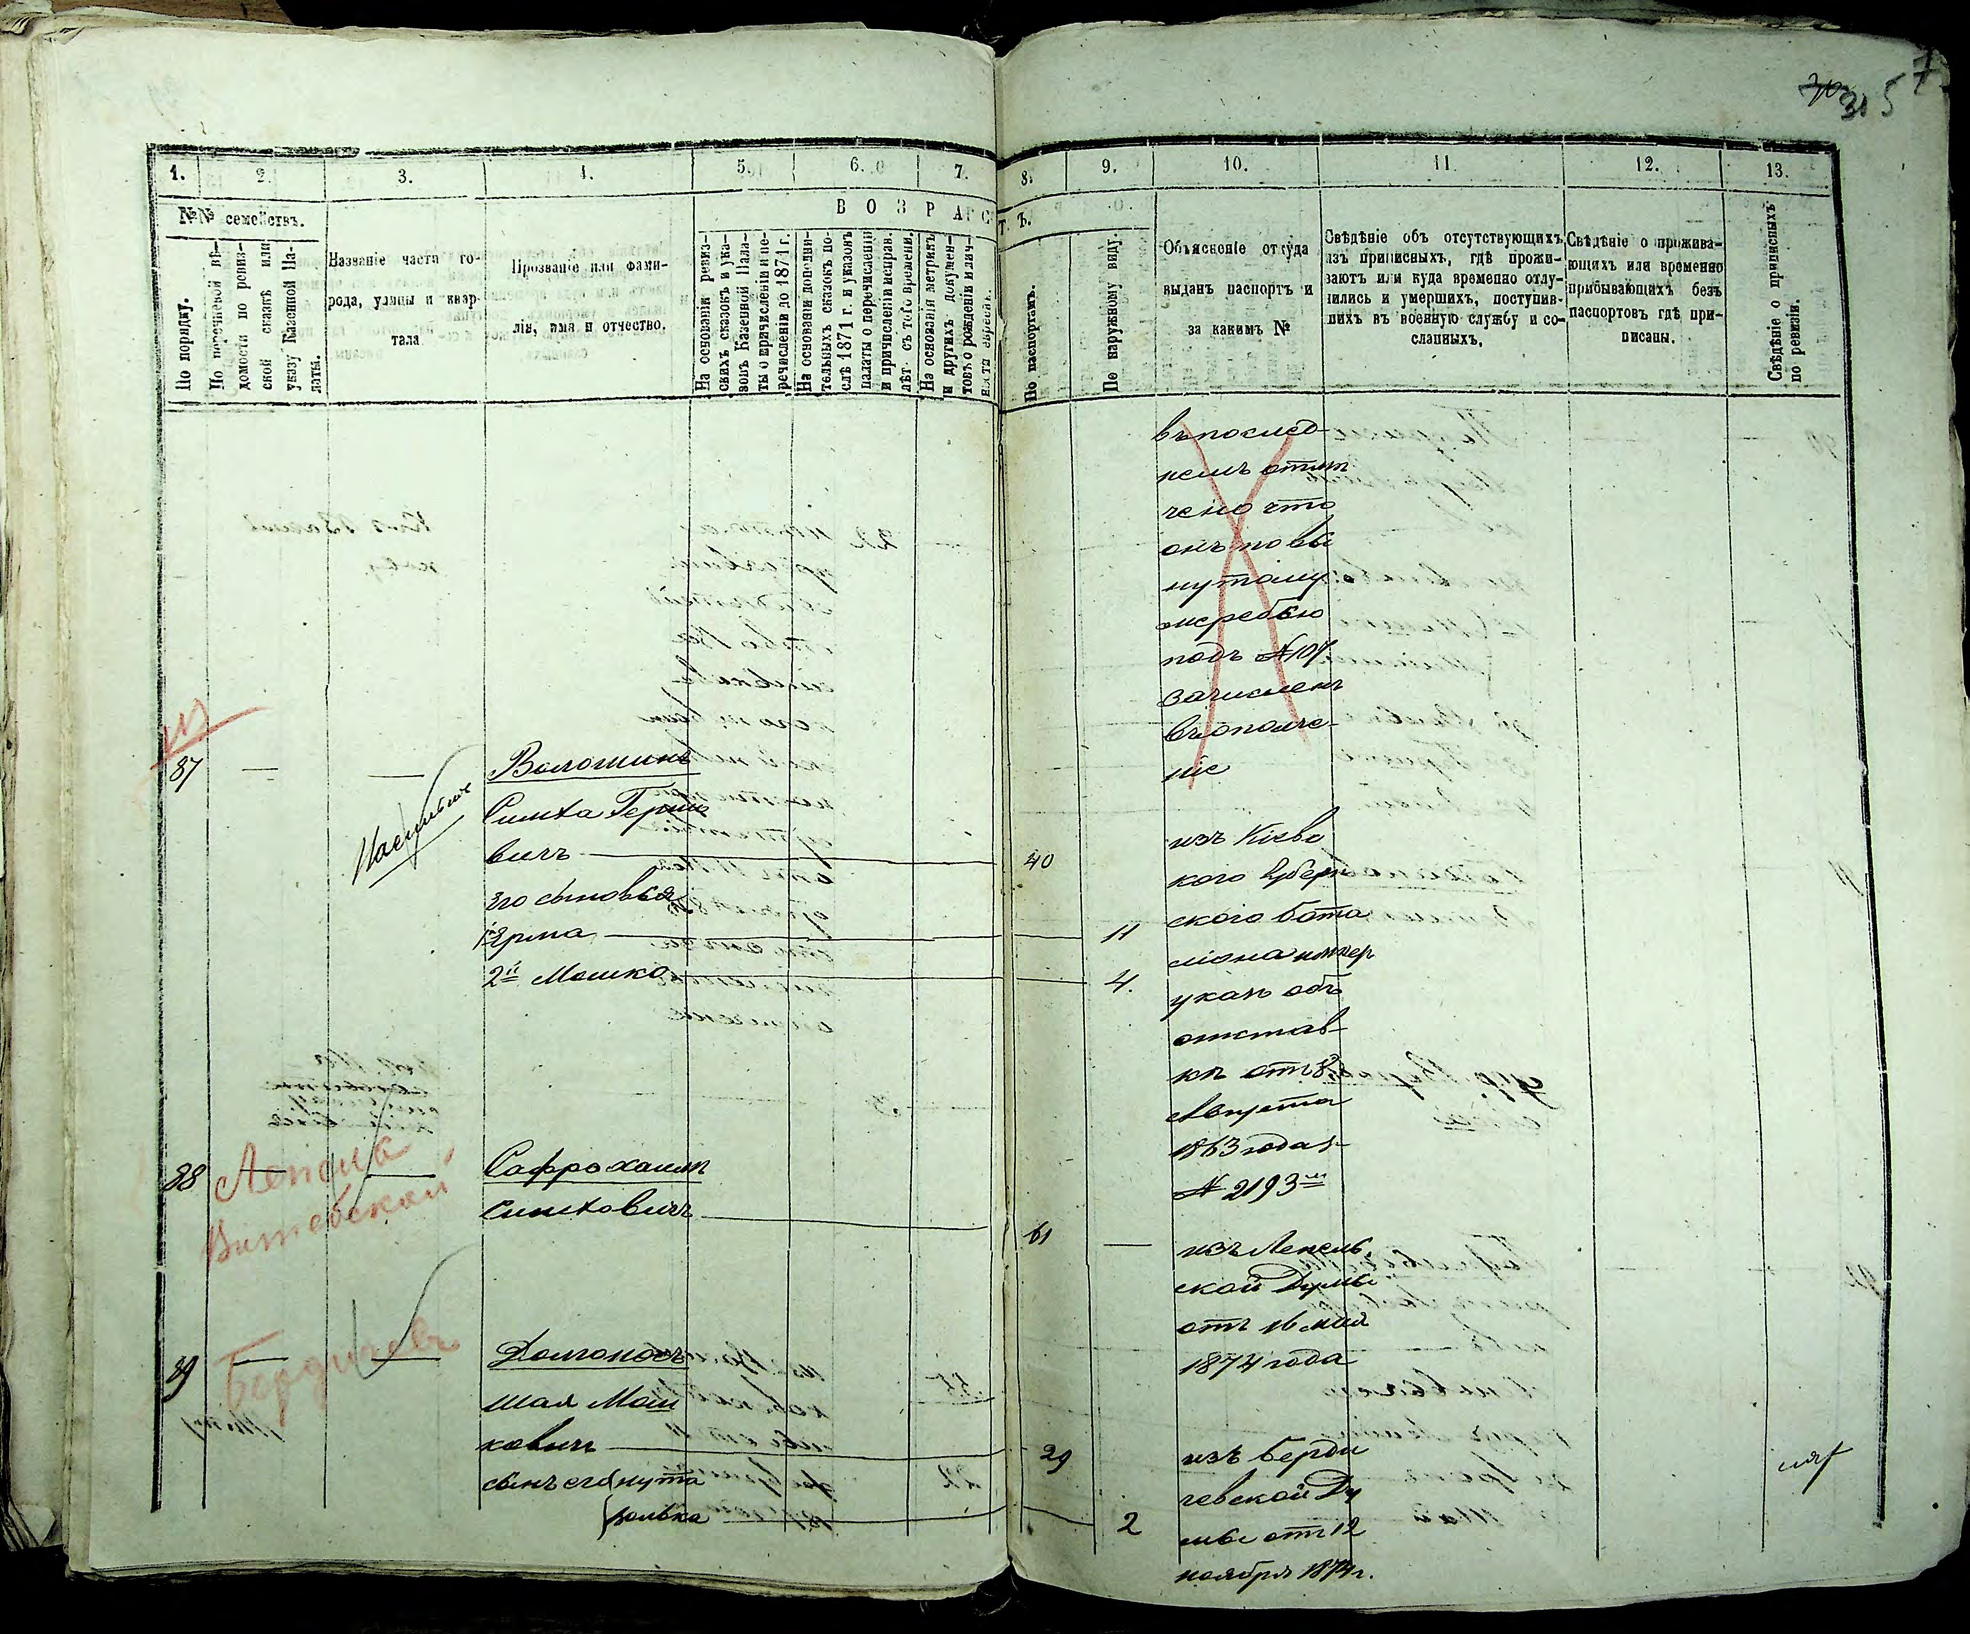 315
7
1.
2.
3.
4.
5.
6.
7.
8.
9.
10.
11.
12.
13.
№№ семействъ.
ВОЗРАСТЪ.
По порядку.
По перечневой вѣ-
домости по ревиз-
ской сказкѣ или
указу Казенной Па-
латы.
Названіе части го-
рода, улицы и квар-
тала
Прозваніе или фами-
лія, имя и отчество.
На основаніи ревиз-
скихъ сказокъ и ука-
зовъ Казенной Пала-
ты о причисленіи и пе-
речисленіи до 1871 г.
На основаніи дополни-
тельныхъ сказокъ по-
слѣ 1871 г. и указовъ
палаты о перечисленіи
и причисленіи исправ.
лѣт. съ того времени.
На основаніи метрикъ
и другихъ докумен-
товъ о рожденіи и лич-
По паспортамъ.
По наружному виду.
Объясненіе откуда
выданъ паспортъ и
за какимъ №
Свѣдѣніе объ отсутствующихъ
изъ приписныхъ, гдѣ прожи-
ваютъ или куда временно отлу-
чились и умершихъ, поступив-
шихъ въ военную службу и со-
сланныхъ.
Свѣдѣніе о прожива-
ющихъ или временно
прибывающихъ безъ
паспортовъ гдѣ при-
писаны.
Свѣдѣніе о приписныхъ
по ревизіи.
въ послѣд-
немъ отмѣ
чено что
онъ по вы
нутому
жребію
подъ №107
зачисленъ
въ ополче-
ніе
87
Волошинъ
Симха Герш
вичъ 40
Его сыновья
Ерма 11
2й Мошко 4.
изъ Кіевс
кого Губерн
ского бата
ліона
указ объ
отстав-
кѣ отъ 8
Августа
1863 года
№ 2193
88
Лепель
Витебской
Сафро хаимъ
Симховичъ 61
изъ Лепель
ской Думы
отъ 16 мая
1874 года
89
Бердичевъ
Долгоносъ
Шая Мош
ковичъ 29
сынъ его нута
волька 2
изъ Берди
чевской Ду
мы отъ 12
ноября 1874 г.